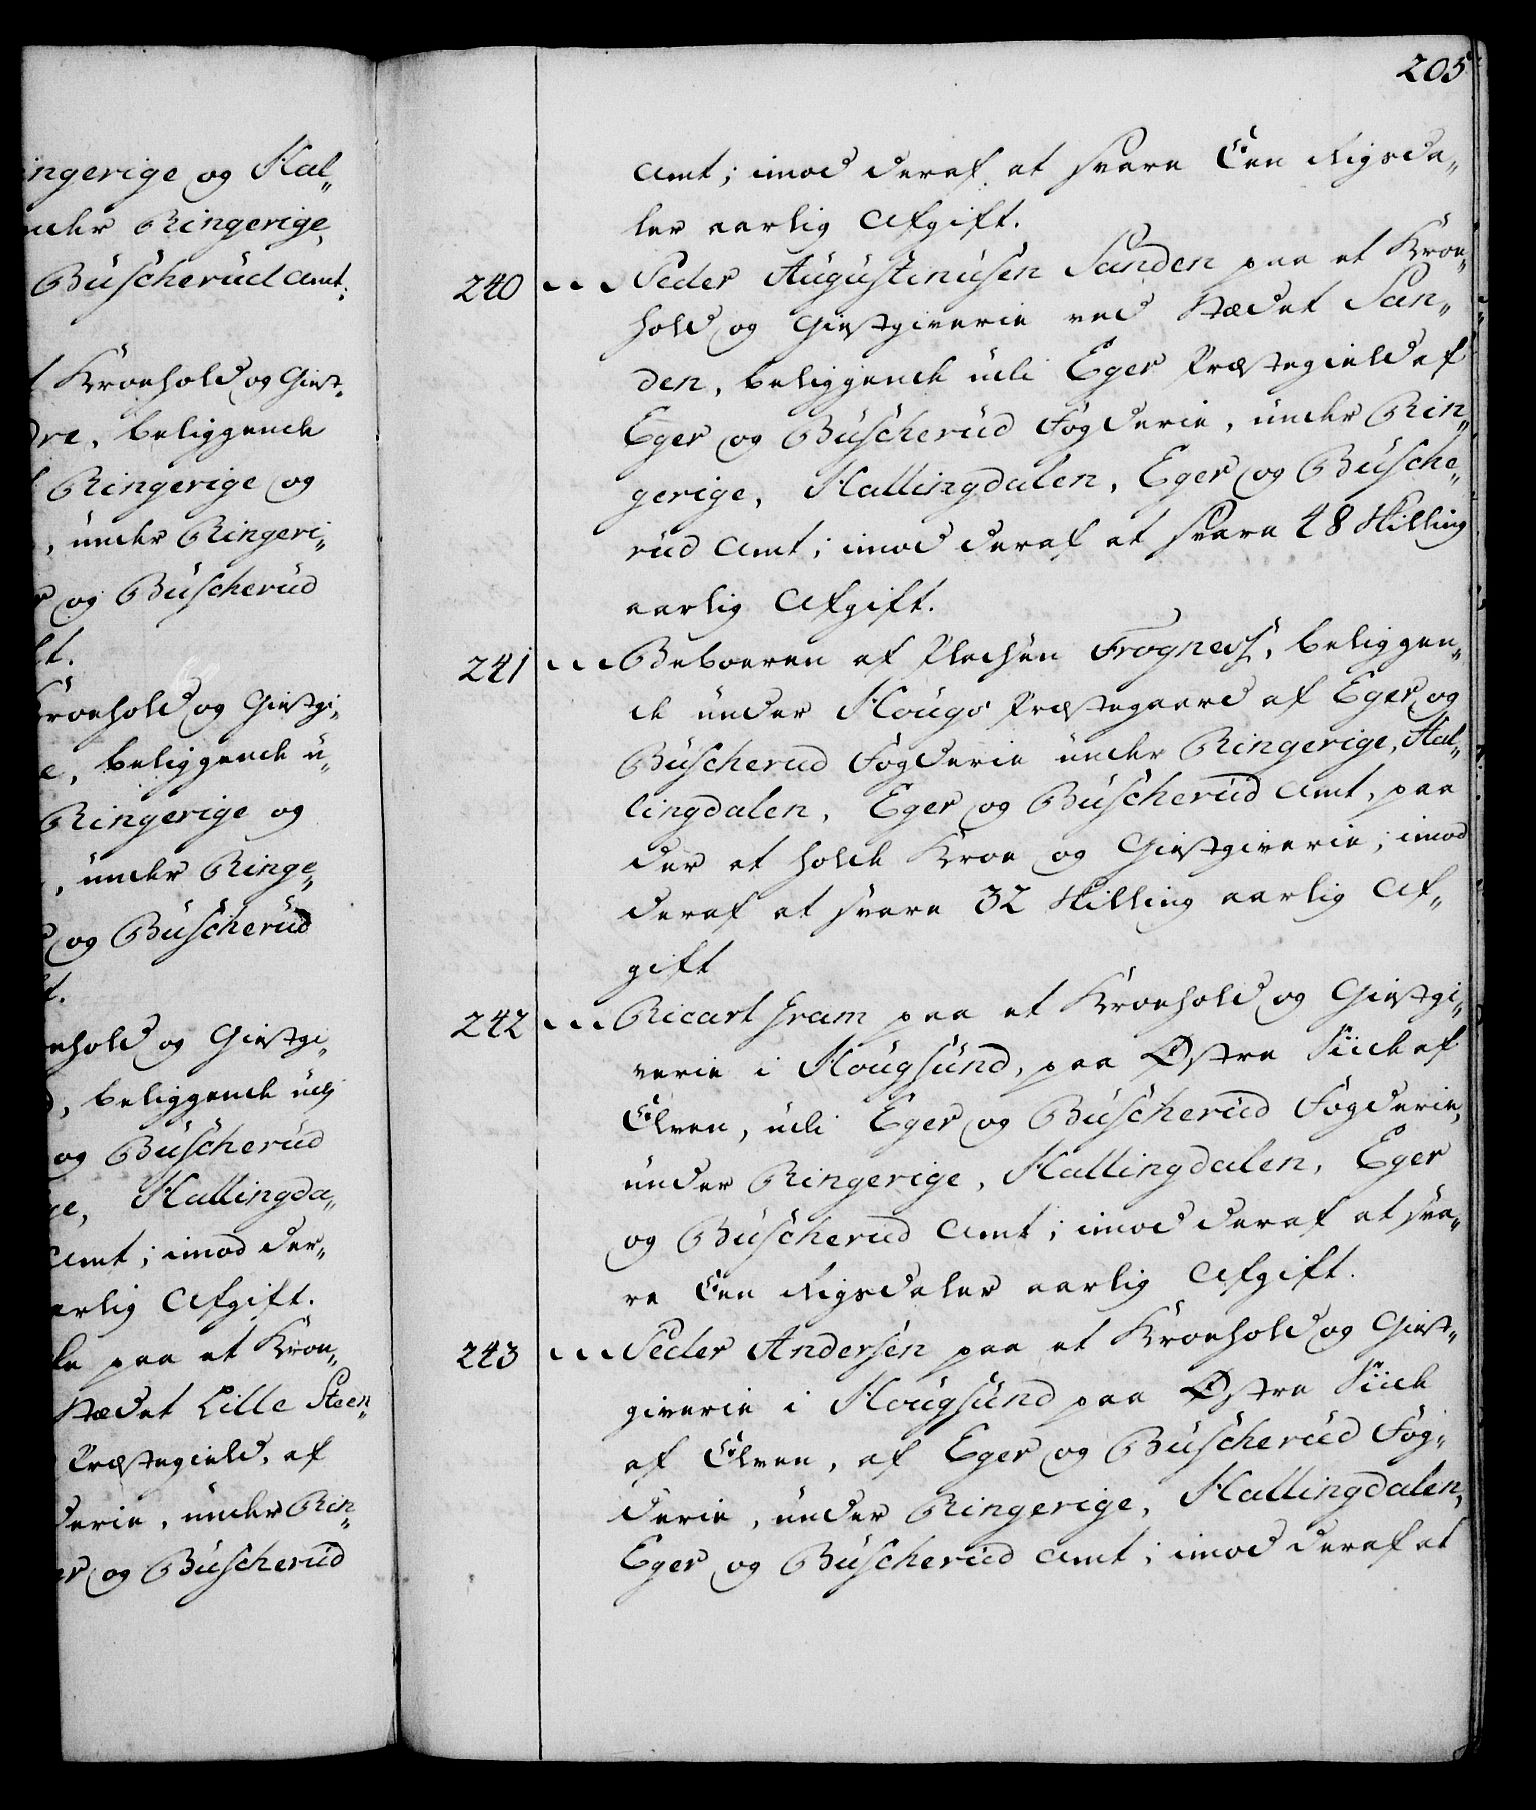 ingerige og Hal„
under Ringerige,
Büscherüd Amt;
Kroehold og Giest„
dre, beliggende
Ringerige og
, under Ringeri„
og Büscherüd
Kroehold og Giestgi„
e, beliggende u„
Ringerige og
, under Ringe„
og Büscherüd
ehold og Giestgi„
, beliggende udi
og Büscherüd
ge, Hallingda„
Amt; imod der„
aarlig Afgift.
paa at Kroe„
Stædet Lille Steen„
Præstegield, af
derie, under Rin„
er og Büscherüd
205
Amt; imod deraf at svare Een Rigsda„
ler aarlig Afgift.
240 Peder Augustinusen Sanden paa at Kroe„
hold og Giestgiverie ved Stædet San„
den, beliggende udi Eger Præstegield af
Eger og Büscherüd Fogderie, under Rin„
gerige, Hallingdalen, Eger og Büsche„
rüd Amt; imod deraf at svare 48 Skilling
aarlig Afgift.
241 Beboeren af Pladsen Frogness, beliggen„
de under Hougs Præstegaard af Eger og
Büscherud Fogderie under Ringerige, Hal„
lingdalen, Eger og Büscherüd Amt, paa
der at holde Kroe og Giestgiverie; imod
deraf at svare 32 Skilling aarlig Af„
gift
242 Ricart Fram paa at Kroehold og Giestgi„
verie i Hougsünd, paa Østre Siide af
Elven, udi Eger og Büscherüd Fogderie,
under Ringerige, Hallingdalen, Eger
og Büscherud Amt; imod deraf at sva„
re Een Rigsdaler aarlig Afgift.
243 Peder Andersen paa at Kroehold og Giest„
giverie i Hougsünd paa Østre Siide
af Elven, af Eger og Büscherüd Fog„
derie, under Ringerige, Hallingdalen,
Eger og Büscherüd Amt; imod deraf at